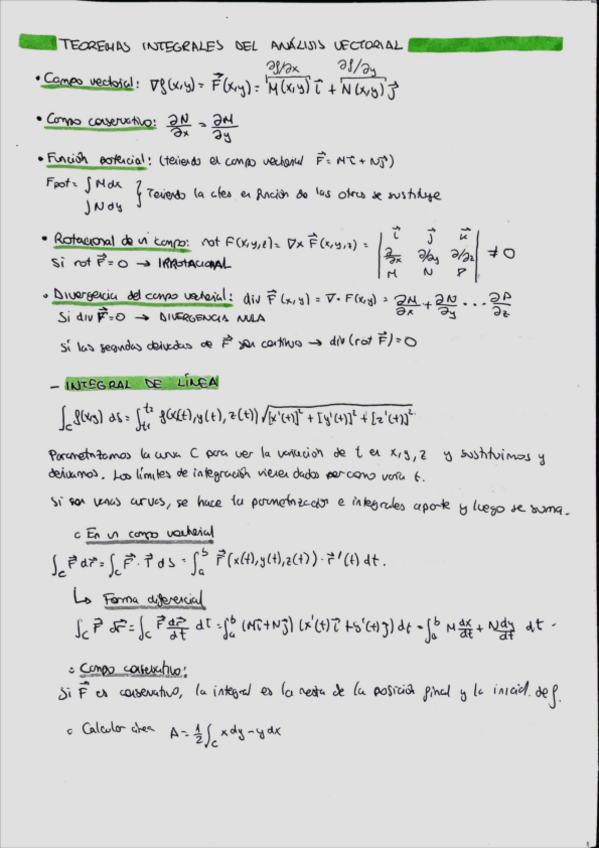 TEOREMAS INTEGRALES DEL ANÁLISIS VECTORIAL
∂f/∂x ∂f/∂y
• Campo vectorial: ∇f(x,y) = F⃗(x,y) = M(x,y) i⃗ + N(x,y) j⃗
• Campo conservativo: ∂N/∂x = ∂M/∂y
• Función potencial: (teniendo el campo vectorial F⃗ = Mi⃗ + Nj⃗)
Fpot = ∫ M dx
∫ N dy } Teniendo la ctes en función de las otras se sustituye
• Rotacional de un campo: rot F(x,y,z) = ∇x F⃗(x,y,z) = | i⃗ j⃗ k⃗ | ∂/∂x ∂/∂y ∂/∂z | M N P | ≠ 0
Si rot F⃗ = 0 → IRROTACIONAL
• Divergencia del campo vectorial: div F⃗(x,y) = ∇ · F(x,y) = ∂M/∂x + ∂N/∂y ... ∂P/∂z
Si div F⃗ = 0 → DIVERGENCIA NULA
Si las segundas derivadas de F⃗ son continuo → div (rot F⃗) = 0
– INTEGRAL DE LÍNEA
∫_C f(x,y) ds = ∫_t1^t2 f(x(t), y(t), z(t)) √([x'(t)]² + [y'(t)]² + [z'(t)]²)
Parametrizamos la curva C para ver la variación de t en x, y, z y sustituimos y
derivamos. Los límites de integración vienen dados por como varía t.
Si son varias curvas, se hace la parametrización e integrales aparte y luego se suma.
◦ En un campo vectorial
∫_C F⃗ dr⃗ = ∫_C F⃗ · T⃗ ds = ∫_a^b F⃗(x(t), y(t), z(t)) · r⃗'(t) dt.
↳ Forma diferencial
∫_C F⃗ dr⃗ = ∫_C F⃗ dr⃗/dt dt = ∫_a^b (Mi⃗ + Nj⃗) (x'(t)i⃗ + y'(t)j⃗) dt = ∫_a^b M dx/dt + N dy/dt dt
◦ Campo conservativo:
Si F⃗ es conservativo, la integral es la resta de la posición final y la inicial de f.
◦ Calcular área A = 1/2 ∫_C x dy – y dx